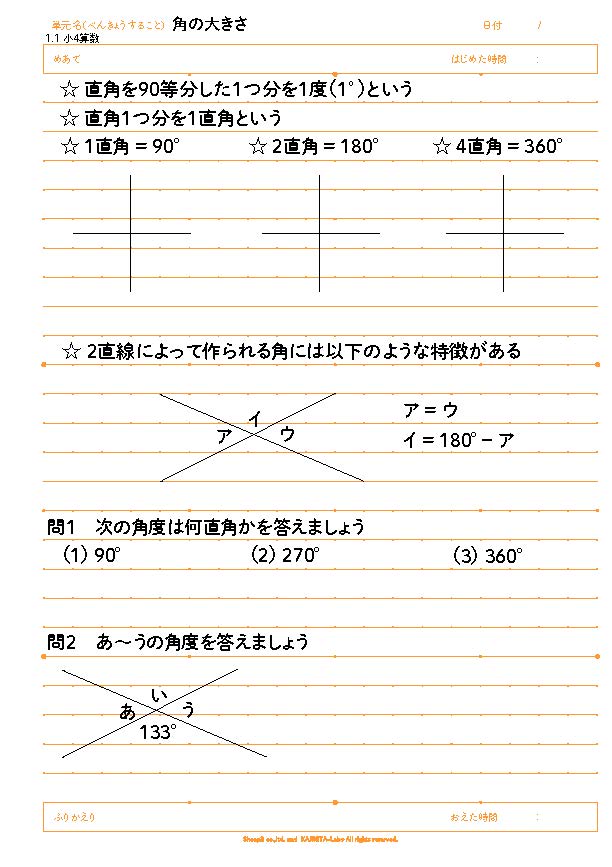 単元名(べんきょうすること) 角の大きさ 日付 /
1.1 小4算数
めあて はじめた時間 :
☆ 直角を90等分した1つ分を1度(1°)という
☆ 直角1つ分を1直角という
☆ 1直角 = 90° ☆ 2直角 = 180° ☆ 4直角 = 360°
☆ 2直線によって作られる角には以下のような特徴がある
ア = ウ
イ
ア ウ
イ = 180° − ア
問1 次の角度は何直角かを答えましょう
(1) 90° (2) 270° (3) 360°
問2 あ~うの角度を答えましょう
い
あ う
133°
ふりかえり おえた時間 :